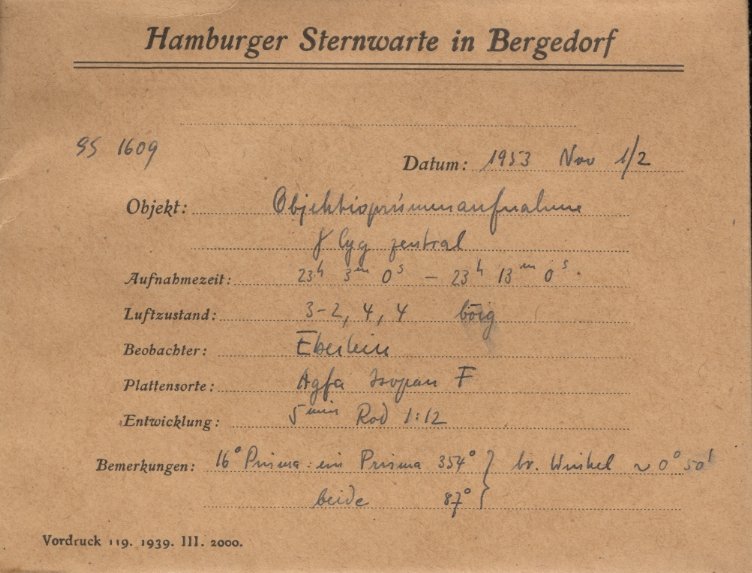 Hamburger Sternwarte in Bergedorf
GS 1609
Datum: 1953 Nov 1/2
Objekt: Objektivprismenaufnahme
γ Cyg zentral
Aufnahmezeit: 23h 3m 0s – 23h 13m 0s.
Luftzustand: 3-2, 4, 4 böig
Beobachter: Eberlein
Plattensorte: Agfa Isopan F
Entwicklung: 5min Rod 1:12
Bemerkungen: 16° Prisma: ein Prisma 354° } br. Winkel ~ 0° 50'
beide 87°
Vordruck 119. 1939. III. 2000.